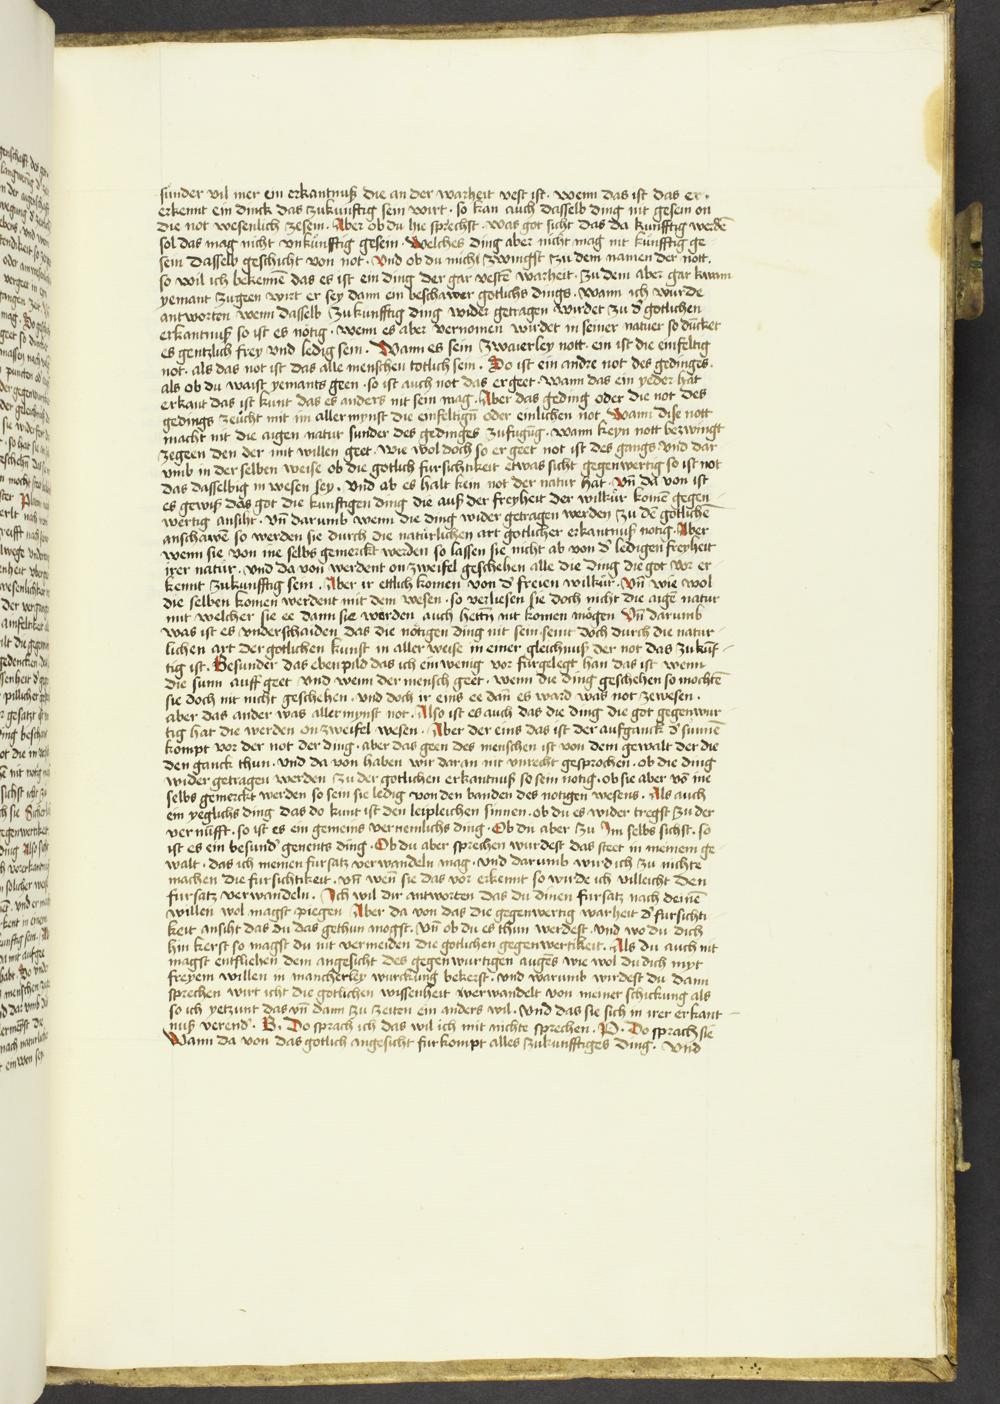 sunder vil mer ein erkantnuß die an der warheit vest ist · wenn das ist das er ·
erkennt ein dinck das zukunftig sein wirt · so kan auch dasselb ding nit gesein on
die not wesenlich zesein · Aber ob du hie sprechst · was got sicht das da kunfftig werdē
sol das mag nicht unkunfftig gesein · Welches ding aber nicht mag nit kunfftig ge
sein dasselb geschicht von not · Und ob du michi zwingst zu dem namen der nott ·
so wil ich bekennē das es ist ein ding der gar vestē warheit · zu dem aber gar kawm
yemant zugeen wirt er sey dann ein beschawer gotlichs dings · wann ich wurde
antworten wenn dasselb zukunfftig ding wider getragen wirdet zu d' gotlichen
erkantnuß so ist es nötig · wenn es aber vernomen wirdet in seiner natuer so dūcket
es gentzlich frey und ledig sein · Wann es sein zwaierley nott · ein ist die einfeltig
not · als das not ist das alle menschen totlich sein · Do ist ein andre not des gedinges ·
als ob du waist yemants geen · so ist auch not das er geet · wann das ein yeder hat
erkant das ist kunt das es anders nit sein mag · Aber das geding oder die not des
gedings zeücht mit im aller mynst die einfeltigū oder einlichen not · Wann dise nott
macht nit die aigen natur sunder des gedinges zufugūg · wann keyn nott bezwingt
zegeen den der mit willen geet · wie wol doch so er geet not ist des gangs · und dar
umb in der selben weise ob die gotlich fursichtikeit etwas sicht gegenwertig so ist not
das dasselbig in wesen sey · und ab es halt kein not der natur hat · Uñ da von ist
es gewiß das got die kunftigen ding die auß der freyheit der wilkür komē gegen
wertig ansiht · uñ darumb wenn die ding wider getragen werden zu dē götlichē
anschawē so werden sie durch die natürlichen art gotlicher erkantnuß notig · Aber
wenn sie von ine selbs gemerckt werden so lassen sie nicht ab von d' ledigen freyheit
irer natür · und da von werdent on zweifel geschehen alle die ding die got vor er
kennt zukunfftig sein · Aber ir ettlich komen von d' freien wilkür · Uñ wie wol
die selben komen werdent mit dem wesen · so verliesen sie doch nicht die aigē natur
mit welcher sie ee dann sie worden auch hettñ nit komen mögen Uñ darumb
was ist es underschaiden das die nötigen ding nit sein · seint doch durch die natur
lichen art der gotlichen kunst in aller weise in einer gleichnuß der not das zukūf
tig ist · Besunder das ebenpild das ich ein wenig vor furgelegt han das ist wenn
die sunn auff geet und wenn der mensch geet · wenn die ding geschehen so mochtē
sie doch nit nicht geschehen · und doch ir eins ee dañ es ward was not zewesen ·
aber das ander was aller mynst not · Also ist es auch das die ding die got gegenwur
tig hat die werden on zweifel wesen · Aber der eins das ist der aufganck d' sunnē
kompt vor der not der ding · aber das geen des menschen ist von dem gewalt der die
den ganck thun · und da von haben wir daran nit unrecht gesprochen · ob die ding
wider getragen werden zu der gotlichen erkantnuß so sein notig · ob sie aber vō ine
selbs gemerckt werden so sein sie ledig von den banden des notigen wesens · Als auch
ein yeglichs ding das do kunt ist den leipleichen sinnen · ob du es wider tregst zu der
vernufft · so ist es ein gemeins vernemlichs ding · Ob du aber zu Im selbs sichst · so
ist es ein besund' genents ding · Ob du aber sprechen wurdest das steet in meinem ge
walt · das ich meinen fursatz verwandeln mag · und darumb wird ich zu nichte
machen die fursichtikeit · uñ weñ sie das vor erkennt so wirde ich villeicht den
fursatz verwandeln · Ich wil dir antworten das du dinen fursatz nach deinē
willen wol magst piegen Aber da von das die gegenwertig warheit d' fursichti
keit ansiht das du das gethun mogst · Uñ ob du es thun werdest · und wo du dich
hin kerst so magst du nit vermeiden die gotlichen gegenwertikeit · Als du auch nit
magst entfliehen dem angesicht des gegenwurtigen auges wie wol du dich myt
freyem willen in mancherley wurckung bekerst · und warumb wirdest du dann
sprechen wirt icht die gotlichen wissenheit verwandelt von meiner schickung als
so ich yetzunt das uñ dann zu zeiten ein anders wil · Und das sie sich in irer erkant
nuß verend' · B · Do sprach ich das wil ich mit nichte sprechen · P · Do sprach sie
Wann da von das gotlich angesicht furkompt alles zukunfftiges ding · Und